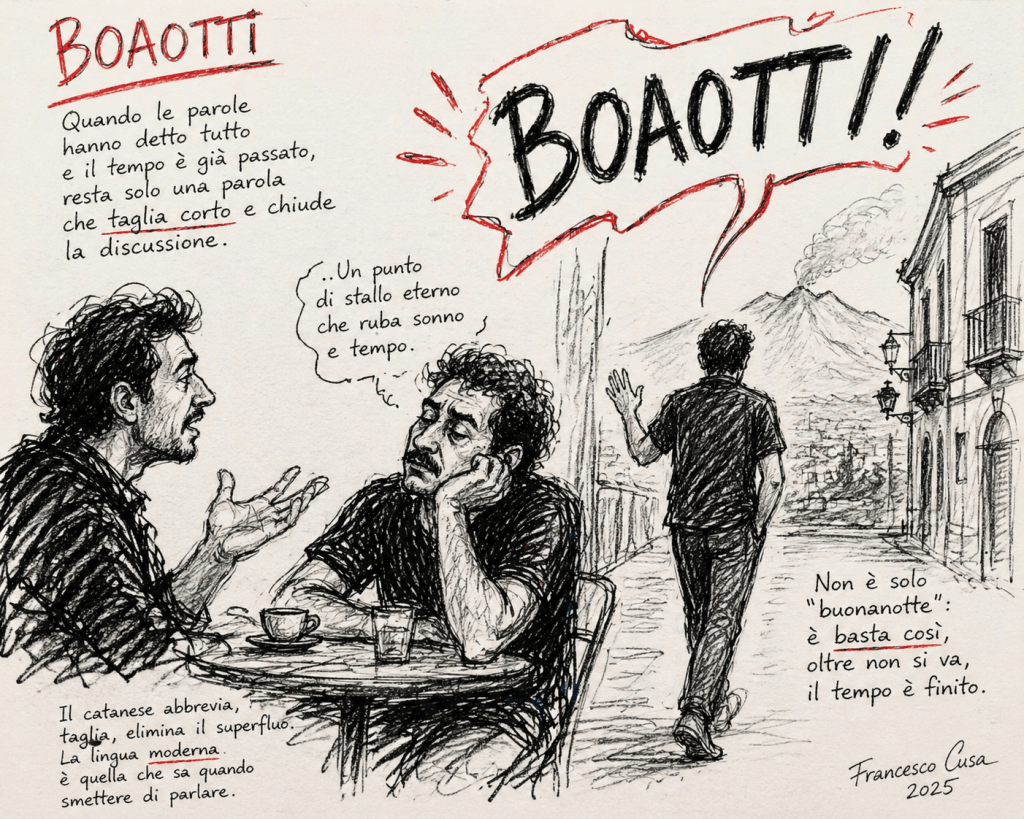 BOAOTTi
Quando le parole
hanno detto tutto
e il tempo è già passato,
resta solo una parola
che taglia corto e chiude
la discussione.
BOAOTTI!!
..Un punto
di stallo eterno
che ruba sonno
e tempo.
Non è solo
"buonanotte":
è basta così,
oltre non si va,
il tempo è finito.
Il catanese abbrevia,
taglia, elimina il superfluo.
La lingua moderna
è quella che sa quando
smettere di parlare.
Francesco Cusa
2025